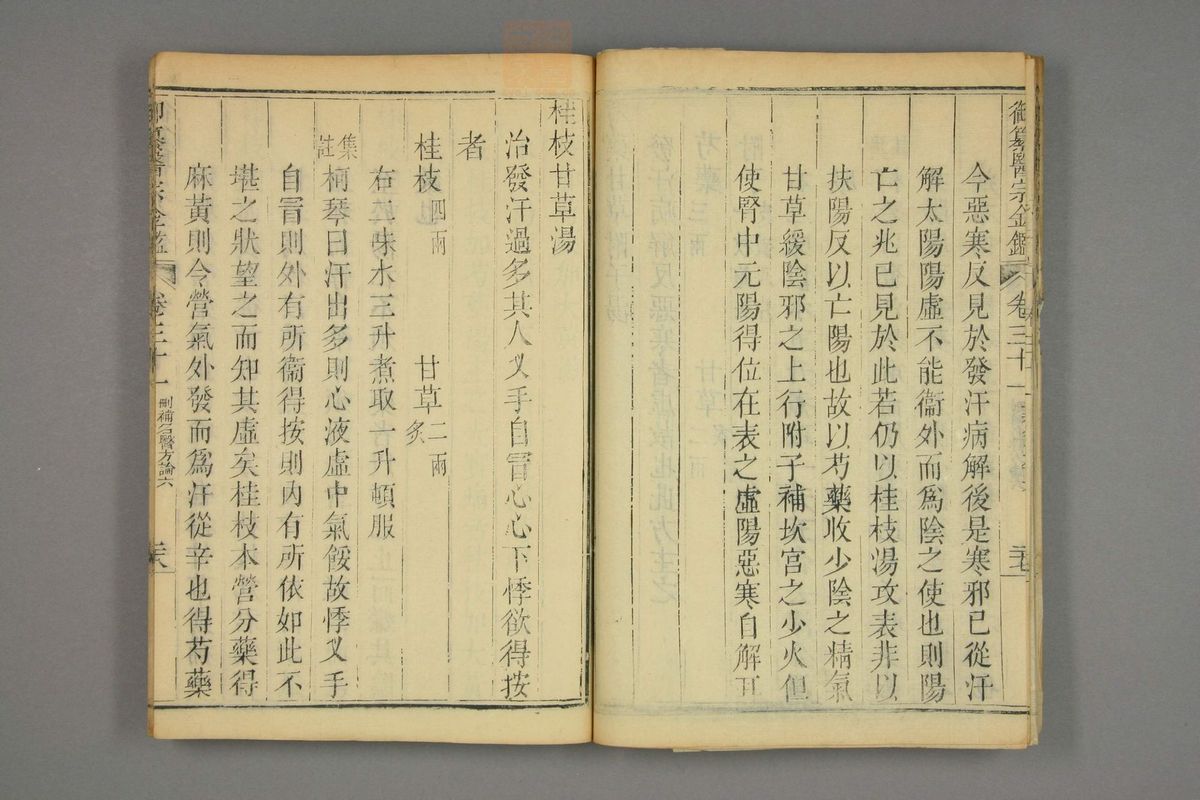 御纂醫宗金鑑 卷三十一
今惡寒反見於發汗病解後是寒邪已從汗
解太陽陽虛不能衞外而爲陰之使也則陽
亡之兆已見於此若仍以桂枝湯攻表非以
扶陽反以亡陽也故以芍藥收少陰之精氣
甘草緩陰邪之上行附子補坎宮之少火但
使腎中元陽得位在表之虛陽惡寒自解耳
桂枝甘草湯
治發汗過多其人叉手自冒心心下悸欲得按
者
桂枝四兩 甘草二兩炙
右二味水三升煮取一升頓服
集註
柯琴曰汗出多則心液虛中氣餒故悸叉手
自冒則外有所衞得按則內有所依如此不
堪之狀望之而知其虛矣桂枝本營分藥得
麻黃則令營氣外發而爲汗從辛也得芍藥
御纂醫宗金鑑 卷三十一 刪補名醫方論六